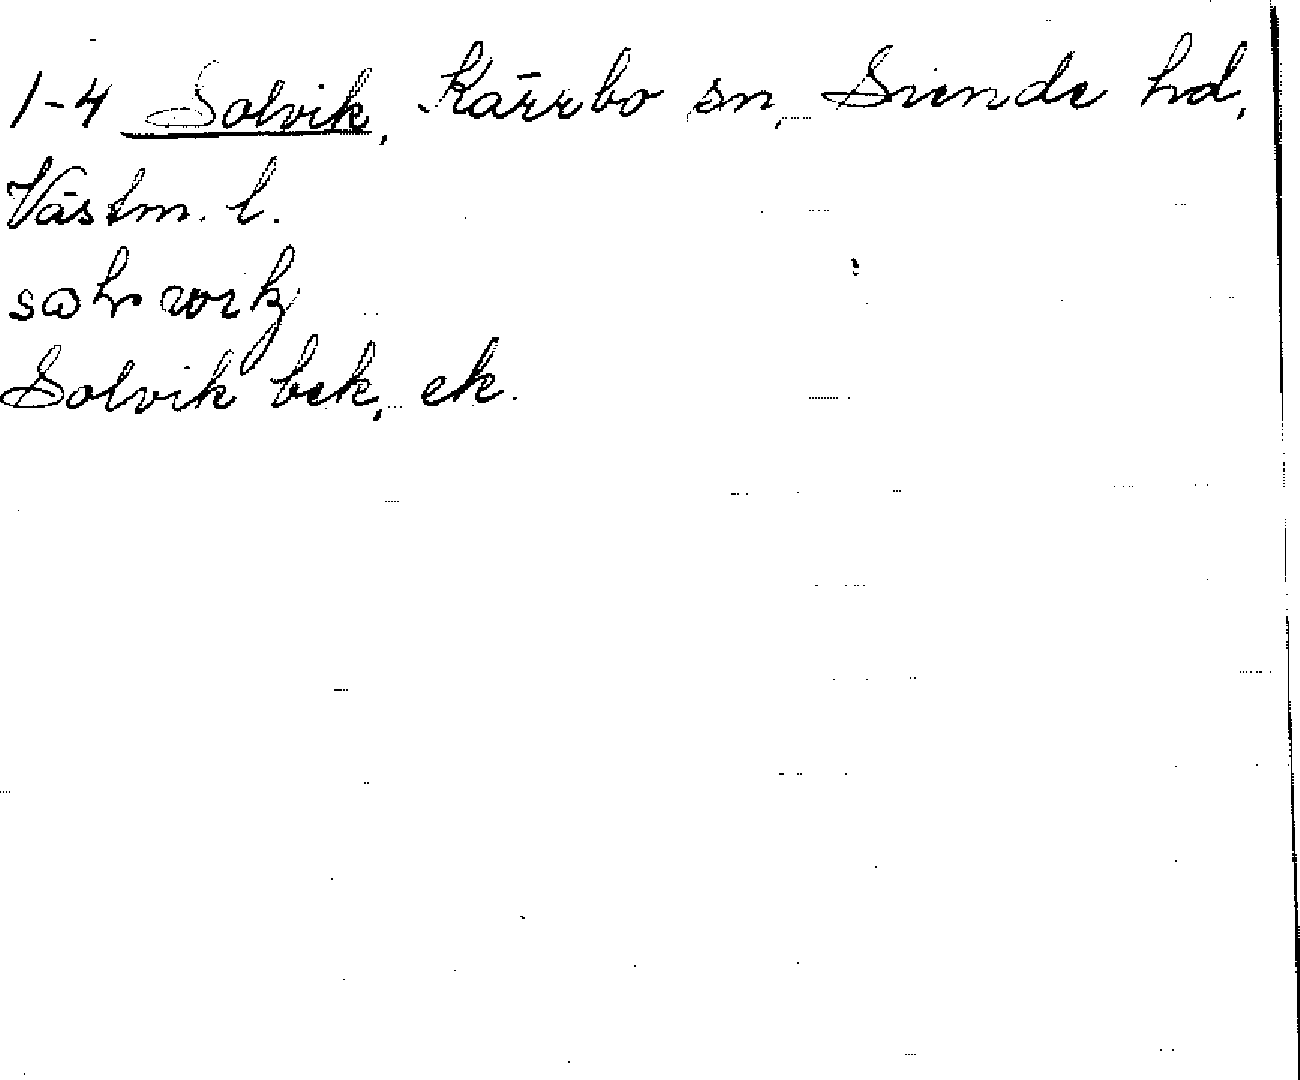 1-4 Solvik, Kärrbo sn, Siende hd,
Västm. l.
Solvik bek, ek.